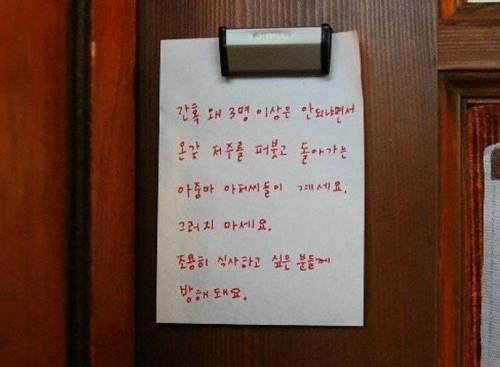 간혹 왜 3명 이상은 안되냐면서
온갖 저주를 퍼붓고 돌아가는
아줌마 아저씨들이 계세요.
그러지 마세요.
조용히 식사하고 싶은 분들께
방해돼요.